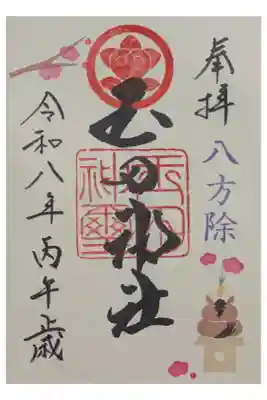 奉拝
八方除
玉田神社
令和八年 丙午歳